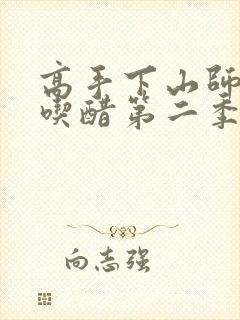 高手下山師
喫醋第二季
向志强